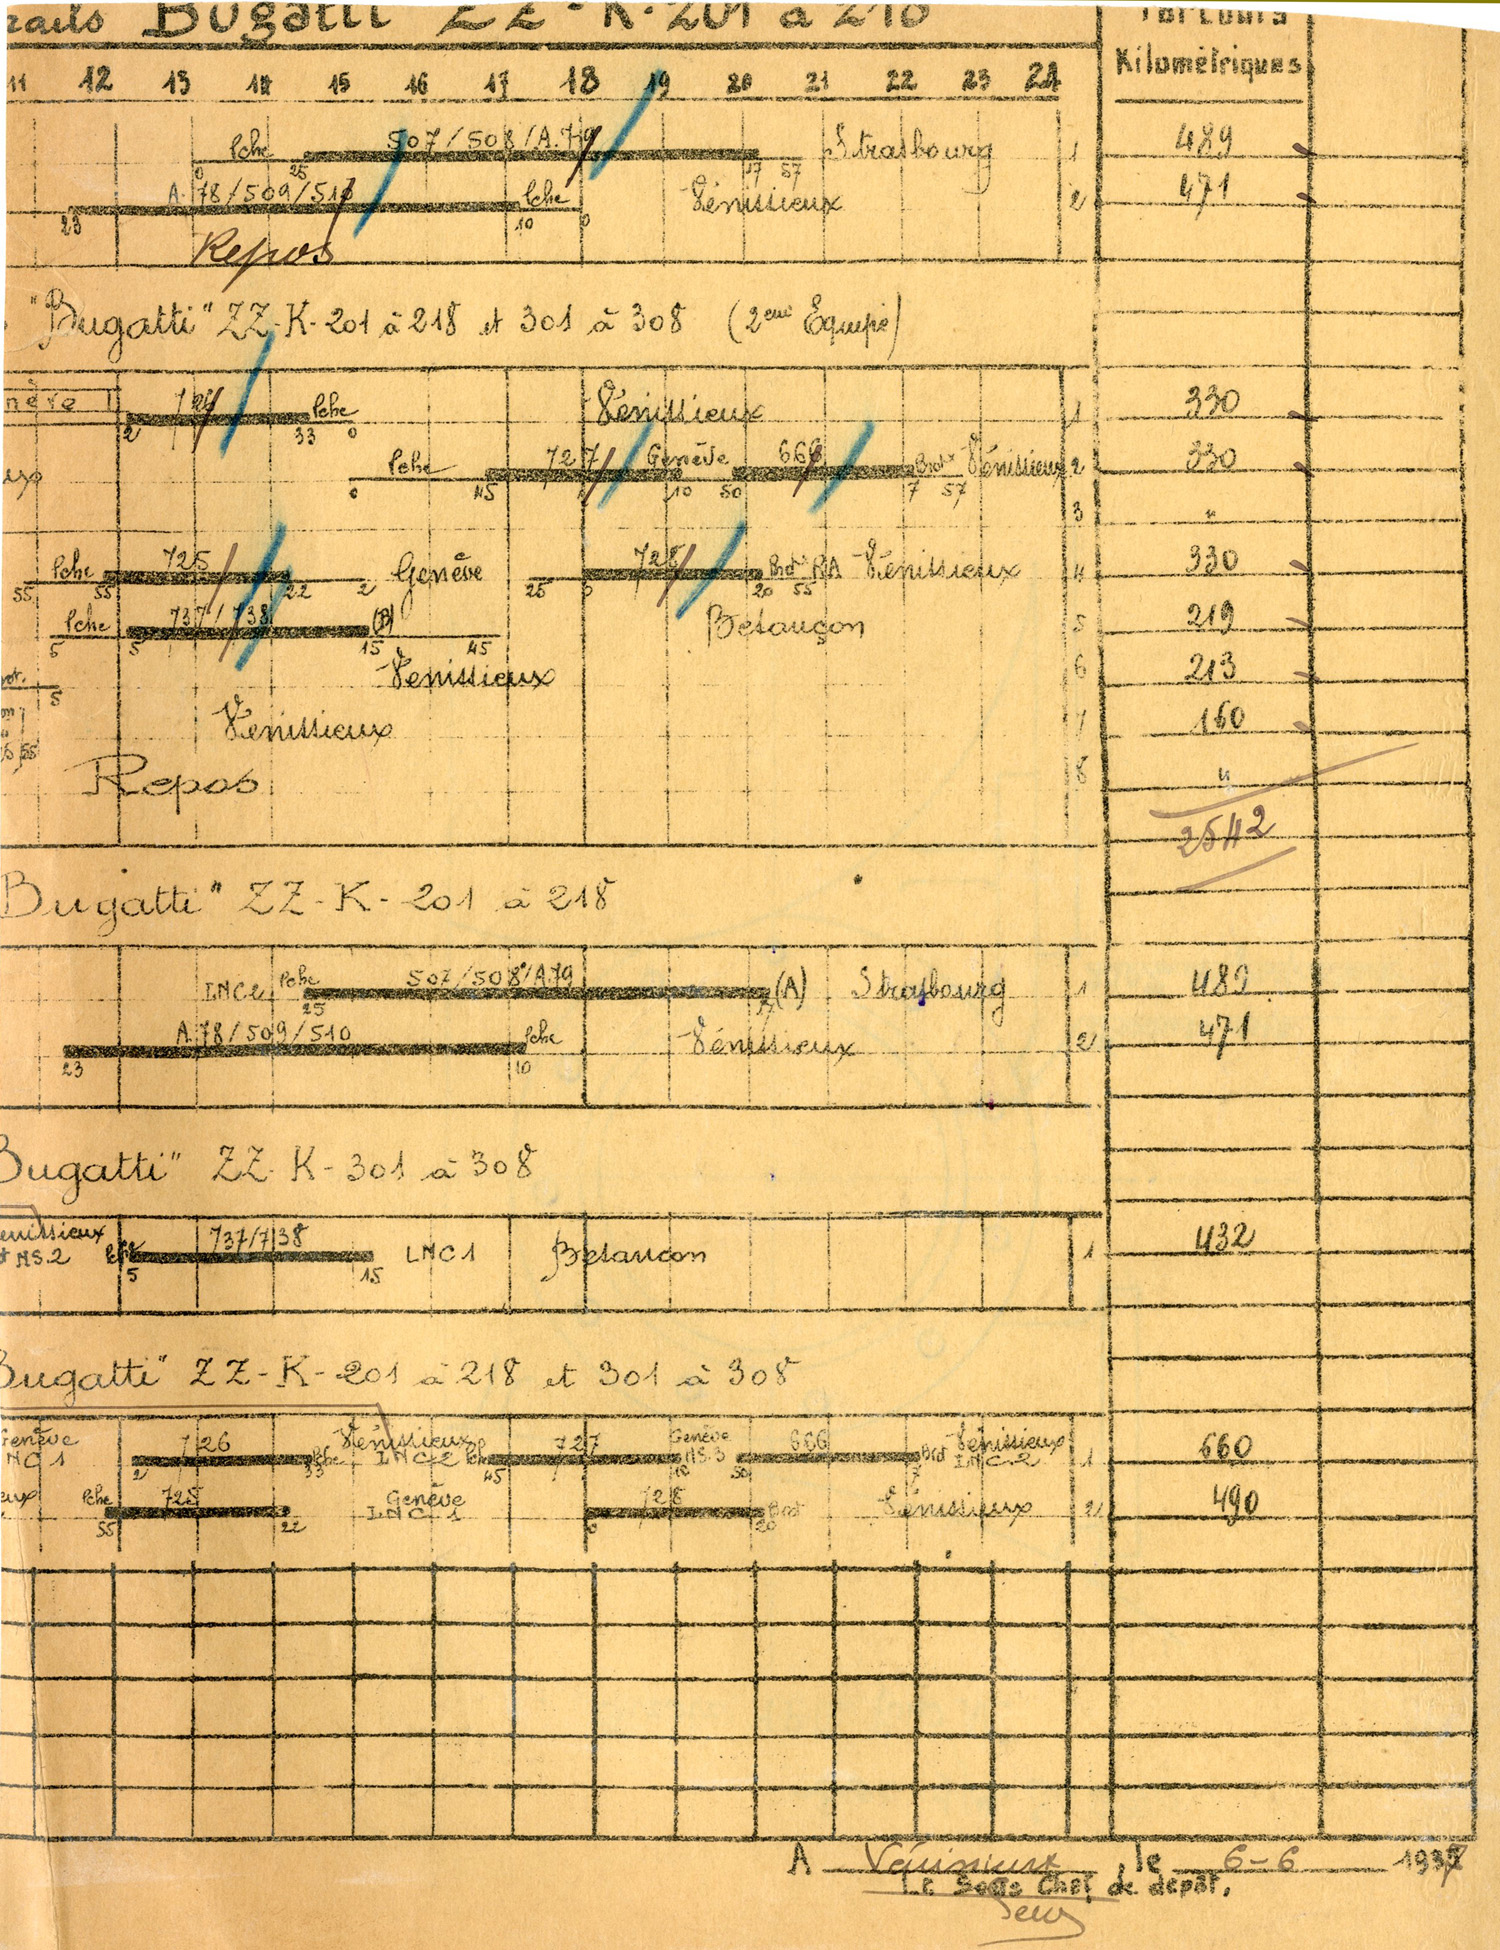 rails Bugatti ZZ-K-201 à 218
Parcours
Kilométriques
11 12 13 14 15 16 17 18 19 20 21 22 23 24
Pche 507/508/A.79 Strasbourg 1 489
0 25 17 57
A.78/509/510 Pche Vénissieux 2 471
23 10 0
Repos
"Bugatti" ZZ-K-201 à 218 et 301 à 308 (2eme Equipe)
nève 726 Pche Venissieux 1 330
2 33 0
Pche 727 Genève 666 Brotx Vénissieux 2 330
0 45 10 50 7 57
3 "
Pche 725 Genève 728 Brotx RA Vénissieux 4 330
55 55 22 2 25 0 20 55
Pche 737/738 (B) Besançon 5 219
5 5 15 45
Venissieux 6 213
5
Venissieux 7 160
Repos 8 "
2542
Bugatti" ZZ-K-201 à 218
LNC2 Pche 507/508/A79 (A) Strasbourg 1 489
25 17
A.78/509/510 Pche Vénissieux 2 471
23 10
Bugatti" ZZ-K-301 à 308
enissieux
MS.2 Pche 737/738 LNC1 Besancon 1 432
5 15
Bugatti" ZZ-K-201 à 218 et 301 à 308
Genève
NC1 726 Pche Vénissieux LNC2 Pche 727 Genève MS.3 666 Brot Vénissieux LNC2 1 660
2 33 45 10 50 7
eux Pche 725 Genève LNC1 728 Brot Vénissieux 2 490
55 22 0 20
A Vénissieux, le 6-6 1937
Le Sous Chef de dépôt,